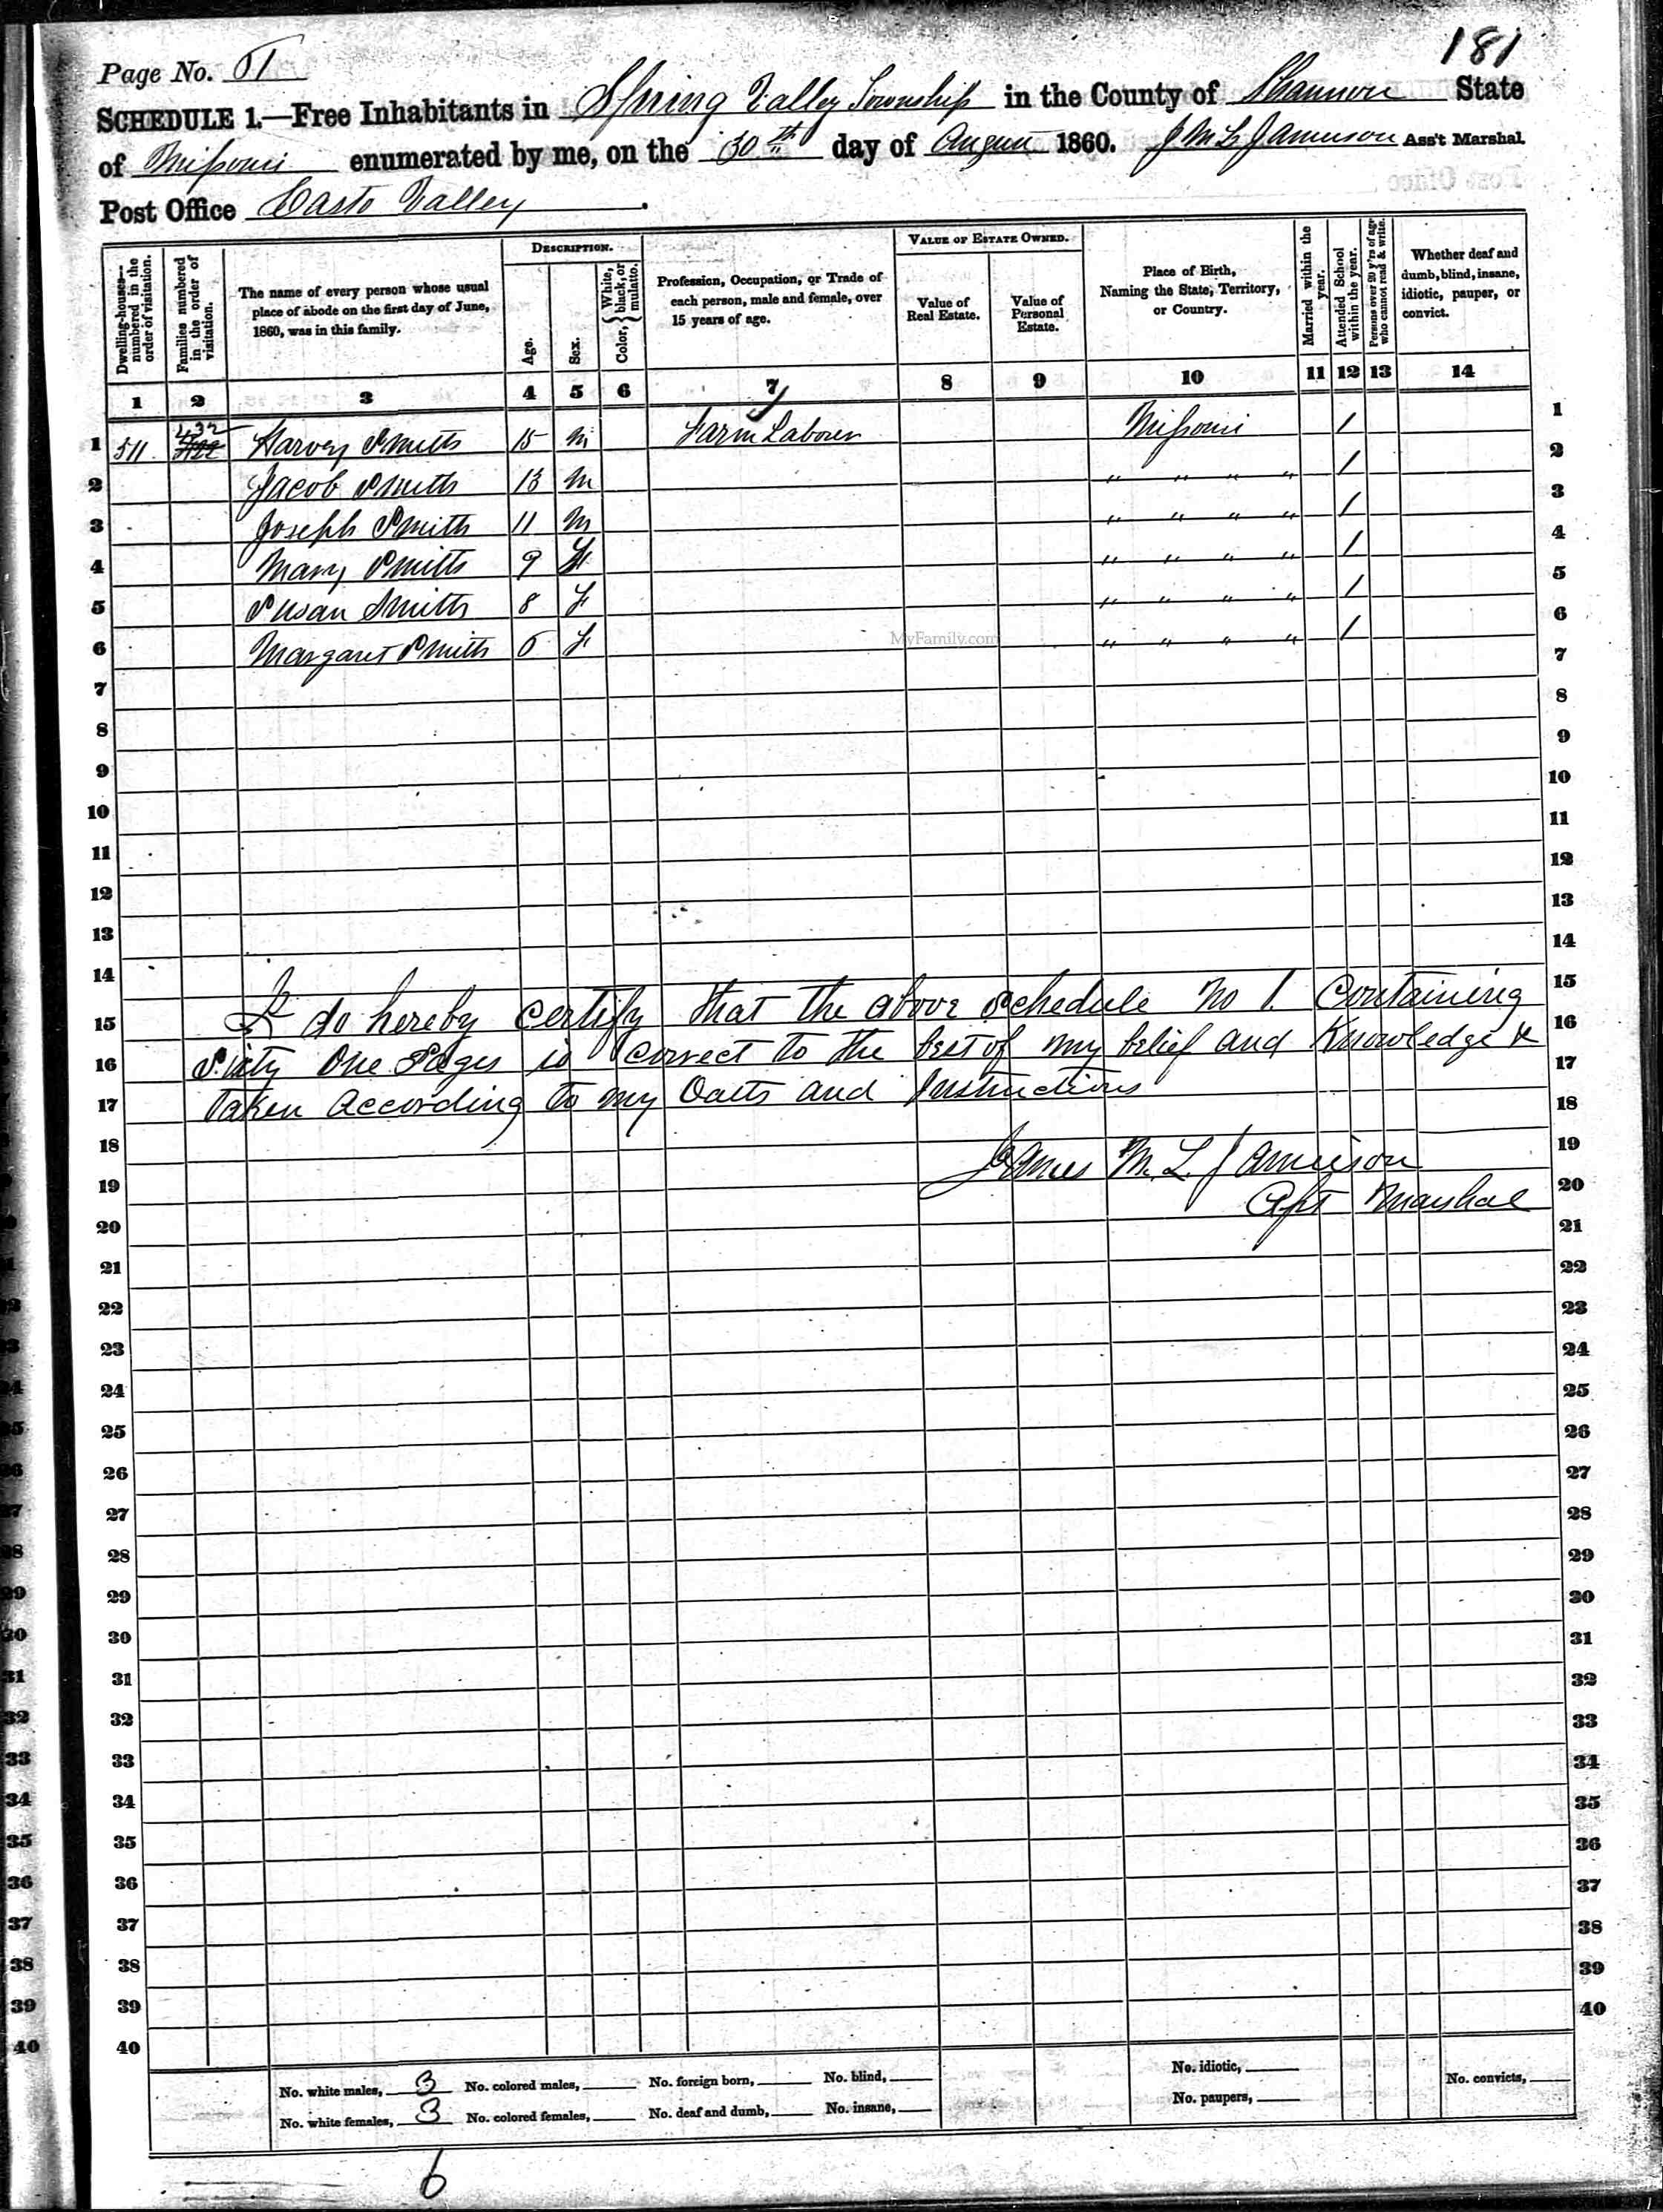 181
Page No. 61
SCHEDULE 1.—Free Inhabitants in Spring Valley Township in the County of Shannon State
of Missouri enumerated by me, on the 30th day of August 1860. J M L Jamison Ass't Marshal.
Post Office Casto Valley
Dwelling-houses—numbered in the order of visitation.
Families numbered in the order of visitation.
The name of every person whose usual place of abode on the first day of June, 1860, was in this family.
DESCRIPTION.
Age.
Sex.
Color, {White, black, or mulatto.
Profession, Occupation, or Trade of each person, male and female, over 15 years of age.
VALUE OF ESTATE OWNED.
Value of Real Estate.
Value of Personal Estate.
Place of Birth, Naming the State, Territory, or Country.
Married within the year.
Attended School within the year.
Persons over 20 y'rs of age who cannot read & write.
Whether deaf and dumb, blind, insane, idiotic, pauper, or convict.
1 2 3 4 5 6 7 8 9 10 11 12 13 14
1 511 432 Harvey Smith 15 m Farm Laborer Missouri / 1
2 Jacob Smith 13 m " " " " / 2
3 Joseph Smith 11 m " " " " / 3
4 Mary Smith 9 f " " " " / 4
5 Susan Smith 8 f " " " " / 5
6 Margaret Smith 6 f " " " " / 6
7 7
8 8
9 9
10 10
11 11
12 12
13 13
14 14
I do hereby certify that the above schedule No 1. Containing 15
15 Sixty One Pages is correct to the best of my belief and Knowledge & 16
16 taken according to my Oath and Instructions 17
17 18
18 James M. L. Jamison 19
19 Asst Marshal 20
20 21
21 22
22 23
23 24
24 25
25 26
26 27
27 28
28 29
29 30
30 31
31 32
32 33
33 34
34 35
35 36
36 37
37 38
38 39
39 40
40
No. white males, 3 No. colored males, No. foreign born, No. blind, No. idiotic, No. convicts,
No. white females, 3 No. colored females, No. deaf and dumb, No. insane, No. paupers,
6
MyFamily.com